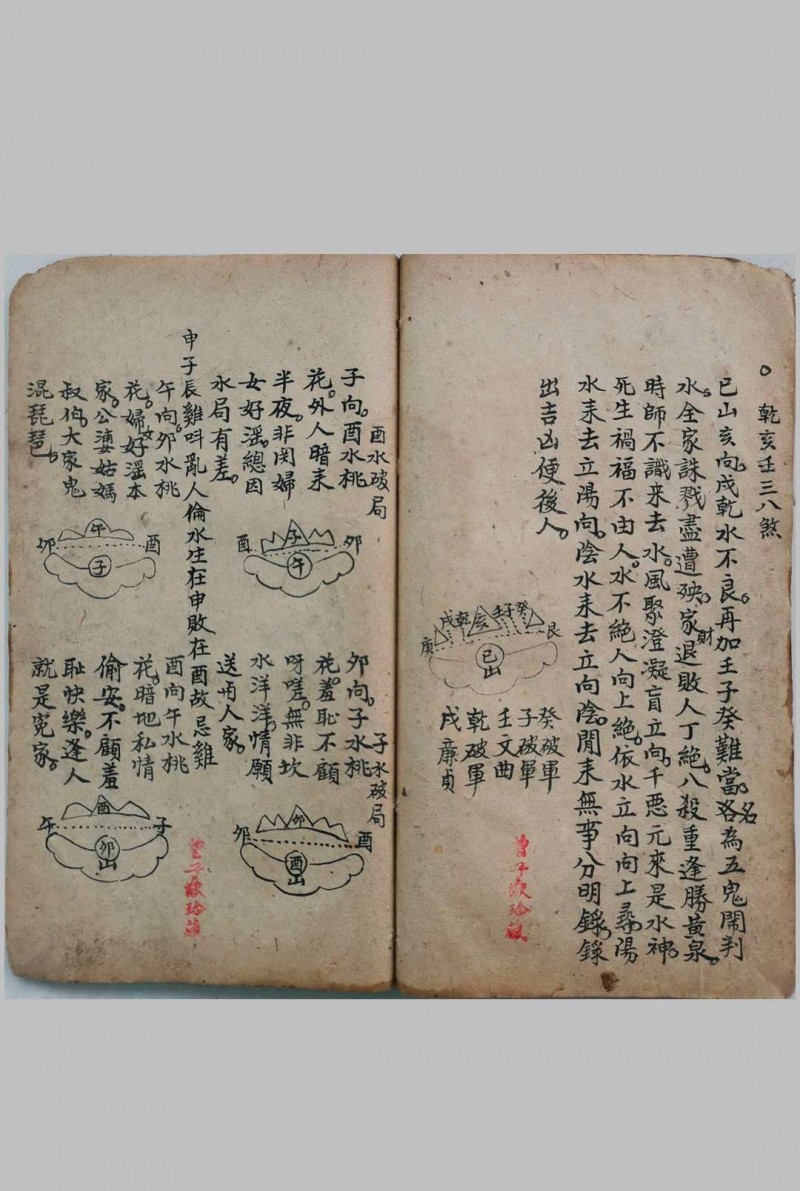 乾亥壬三八煞
巳山亥向戌乾水不良。再加壬子癸難當。名為五鬼鬧判
水。全家誅戮盡遭殃。家財退敗人丁絕。八殺重逢勝黃泉。
時師不識来去水。風聚澄凝盲立向。千悪元來是水神。
死生禍福不由人。水不絕人向上絕。依水立向向上尋。陽
水耒去立陽向。陰水耒去立向陰。閒耒無事分明錄。錄
出吉凶便後人。
庚
戌
乾
亥
壬
子
癸
艮
巳山
癸破軍
子破軍
壬文曲
乾破軍
戌廉貞
酉水破局
子向。酉水桃
花。外人暗耒
半夜。非関婦
女好滛。總因
水局有差。
酉
子
卯
午
子水破局
夘向。子水桃
花。羞恥不顧
呀嗟。無非坎
水洋洋。情願
送与人家。
夘
卯
酉
酉山
申子辰雞呌亂人倫水生在申敗在酉故忌雞
午向。夘水桃
花。婦女好滛本
家。公婆姑媽
叔伯。大家鬼
混琵琶。
夘
午
酉
子
酉向午水桃
花。暗地私情
偷安。不顧羞
恥快樂。逢人
就是冤家。
午
酉
子
卯山